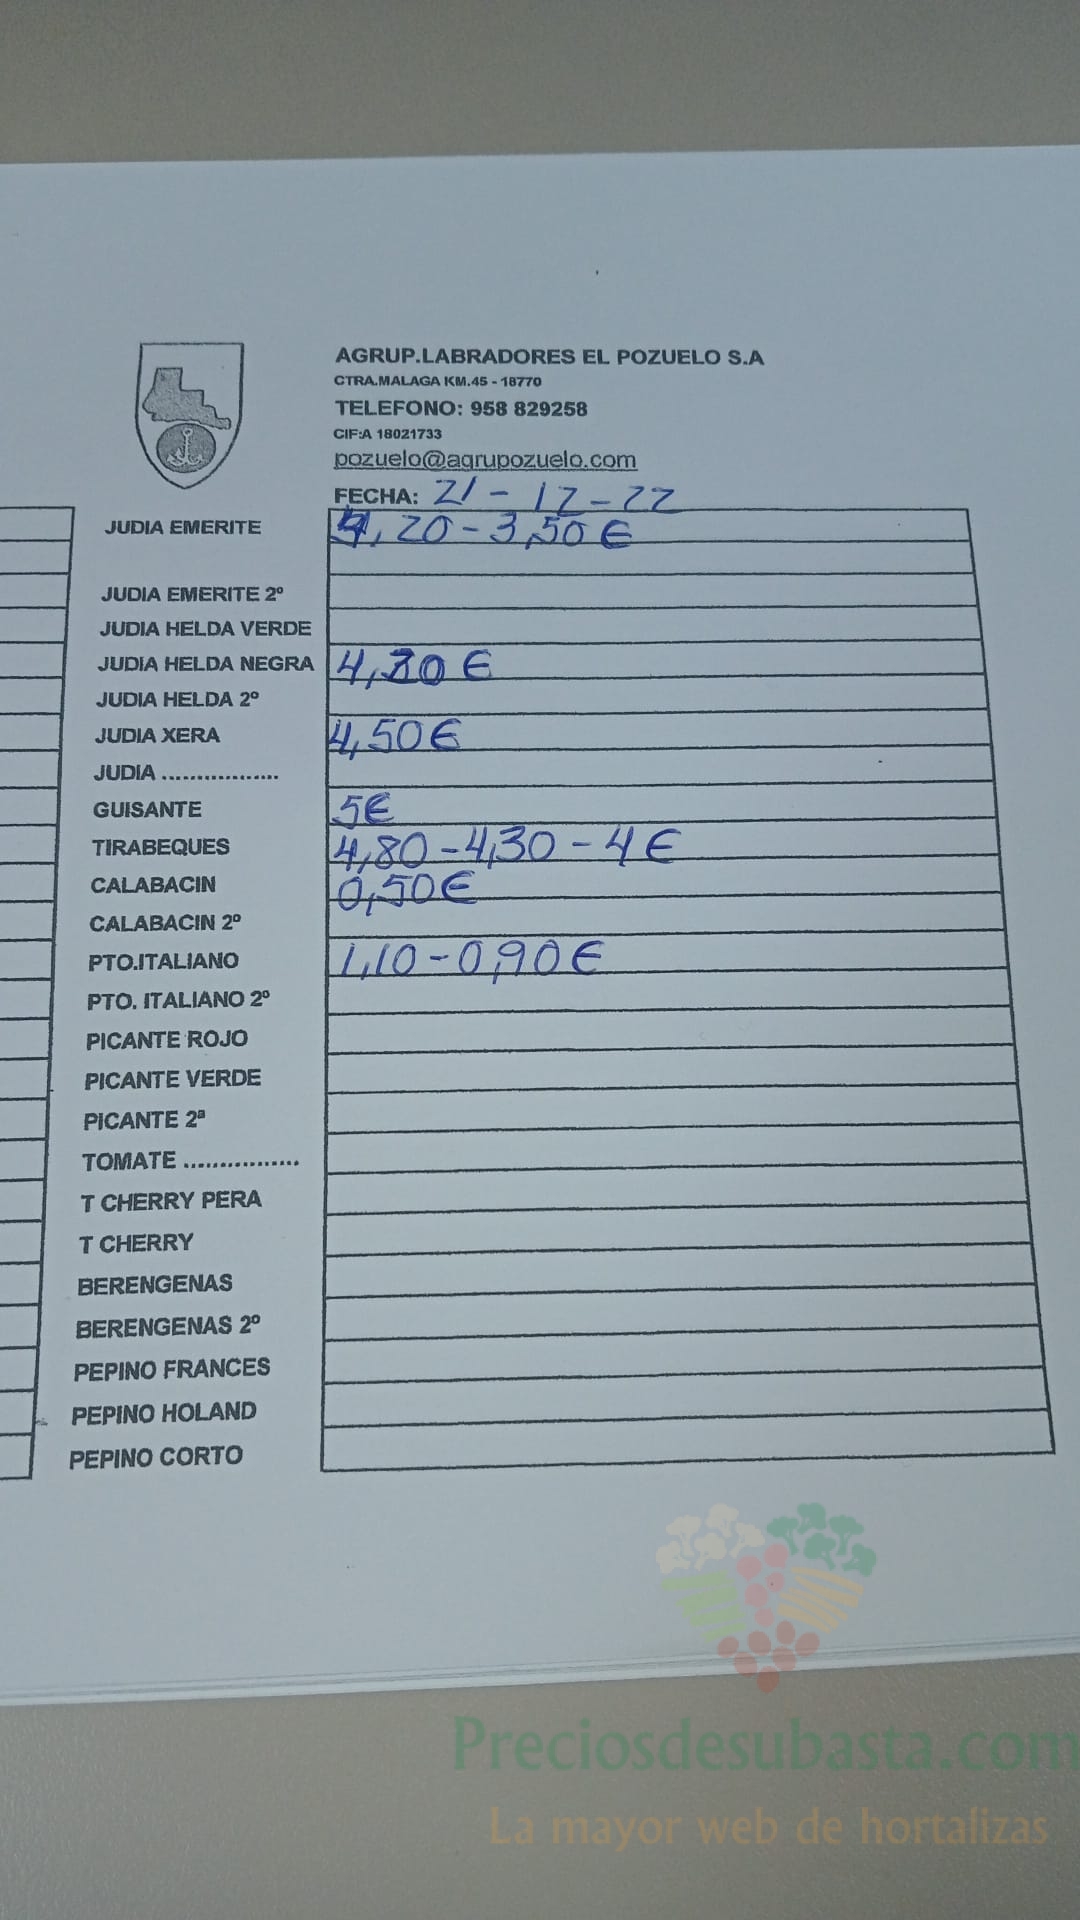 AGRUP.LABRADORES EL POZUELO S.A
CTRA.MALAGA KM.45 - 18770
TELEFONO: 958 829258
CIF:A 18021733
pozuelo@agrupozuelo.com
FECHA: 21-12-22
JUDIA EMERITE ,20-3,50€
JUDIA EMERITE 2º
JUDIA HELDA VERDE
JUDIA HELDA NEGRA
JUDIA HELDA 2º
JUDIA XERA 4,50€
JUDIA .................
GUISANTE 5€
TIRABEQUES 4,80-4,30-4€
CALABACIN 0,50€
CALABACIN 2º
PTO.ITALIANO 1,10-0,90€
PTO. ITALIANO 2º
PICANTE ROJO
PICANTE VERDE
PICANTE 2ª
TOMATE ................
T CHERRY PERA
T CHERRY
BERENGENAS
BERENGENAS 2º
PEPINO FRANCES
PEPINO HOLAND
PEPINO CORTO
Preciosdesubasta.com
La mayor web de hortalizas